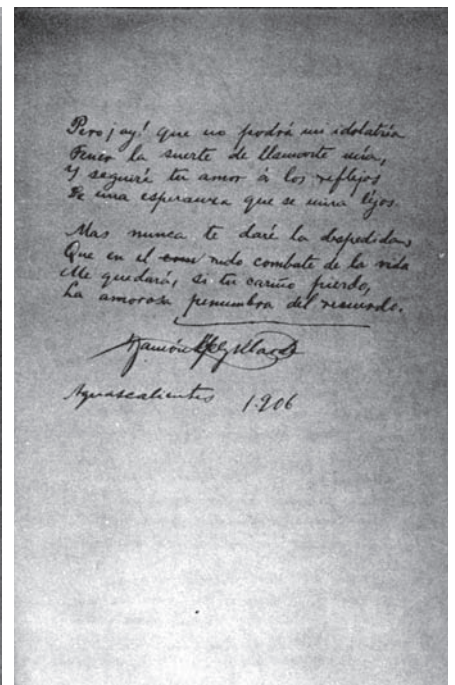 Pero ¡ay! que no podrá mi idolatría
Tener la suerte de llamarte mía,
Y seguiré tu amor á los reflejos
De una esperanza que se mira léjos.
Mas nunca te daré la despedida
Que en el rudo combate de la vida
Me quedará, si tu cariño pierdo,
La amorosa penumbra del recuerdo.
Ramón López Velarde
Aguascalientes 1.906